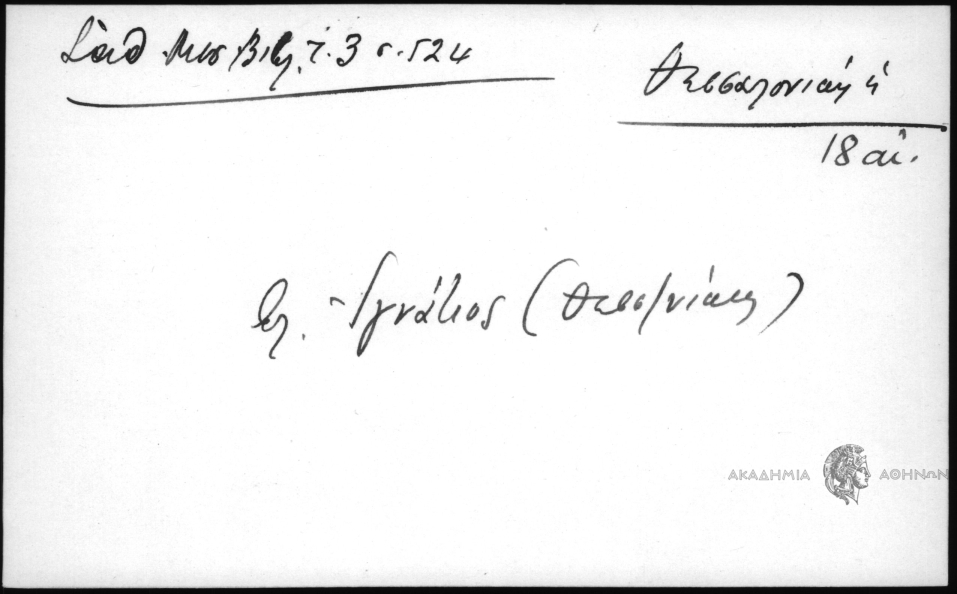 Σάθ Μεσ Βιβλ. τ. 3 σ. 524
Θεσσαλονίκη ἡ
18 αἰ.
βλ. Ἰγνάτιος (Θεσσ/νίκης)
ΑΚΑΔΗΜΙΑ ΑΘΗΝΩΝ